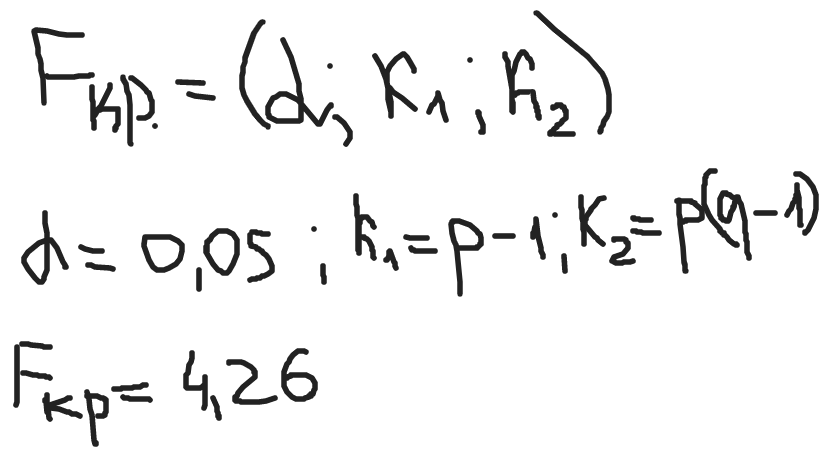 Fкр. = (α; K₁; K₂)
α = 0,05; K₁ = p-1; K₂ = p(q-1)
Fкр = 4,26